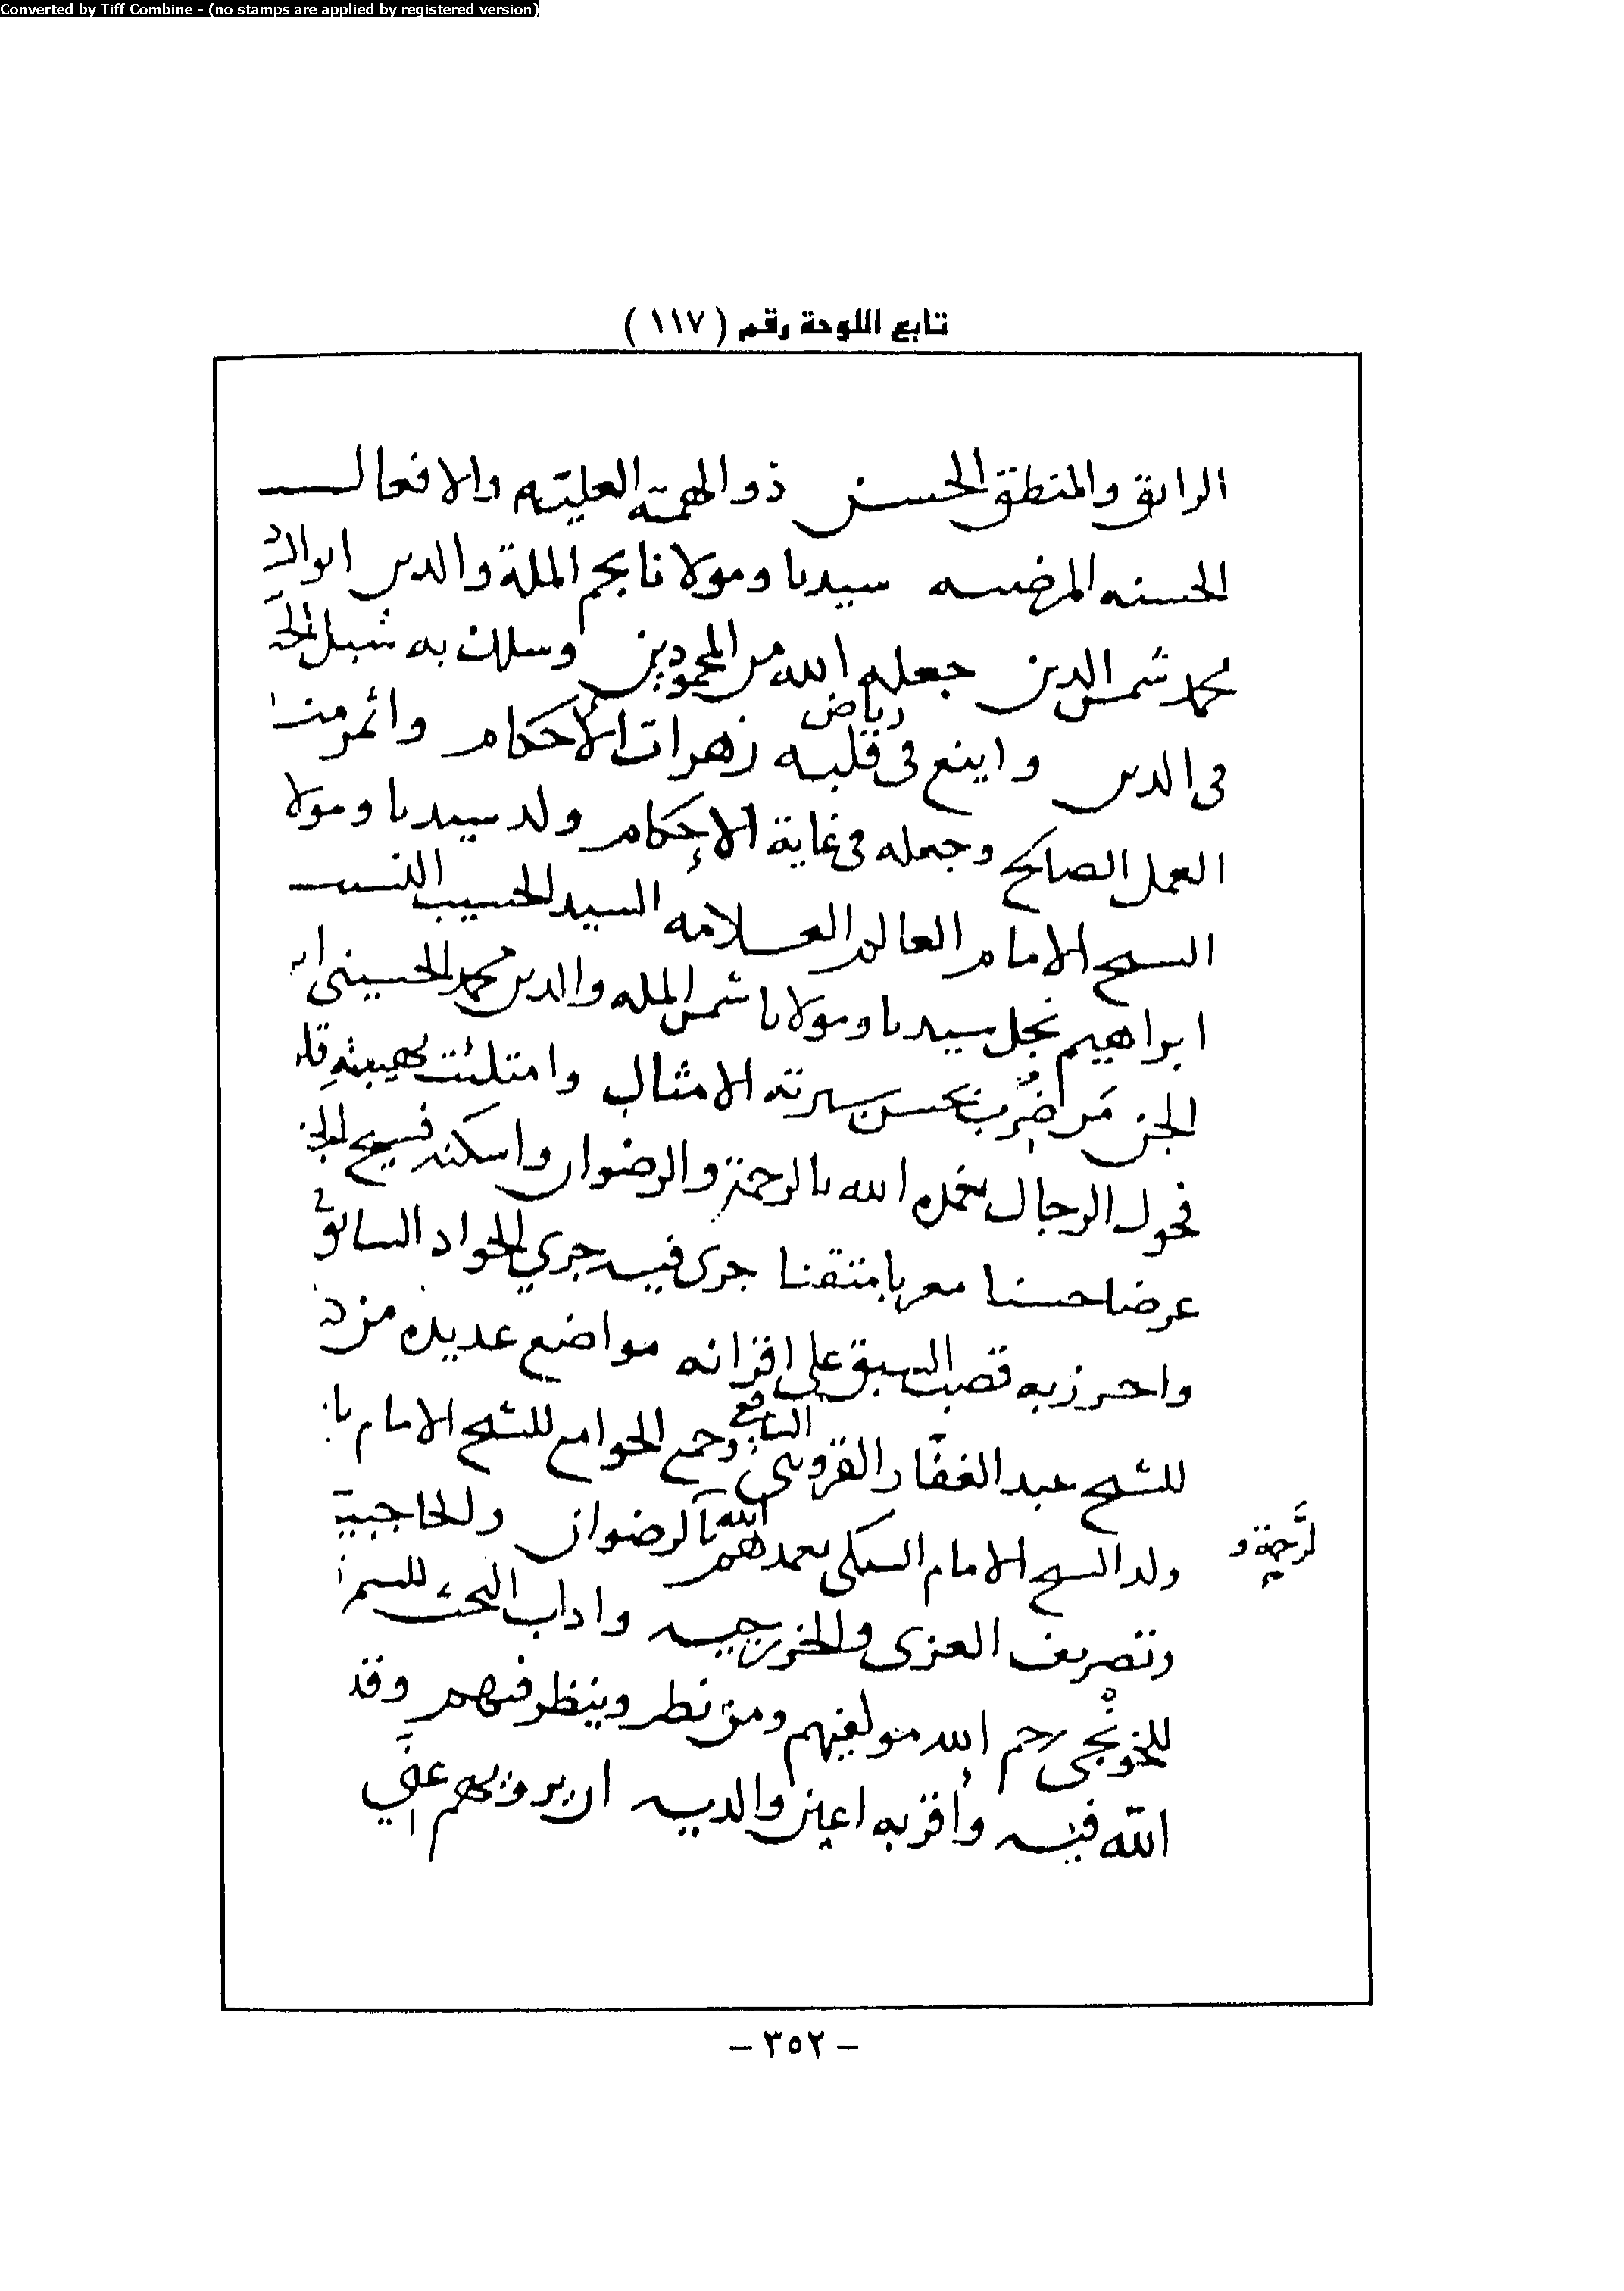 Converted by Tiff Combine - (no stamps are applied by registered version)
تابع اللوحة رقم ( ١١٧ )
الرايق والمنطق الحسن ذو الهمة العلية والافعال
الحسنه المرضيه سيدنا ومولانا نجم الملة والدين ابو
محمد شمس الدين جعله الله من المحمودين وسلك به سبل
فى الدين واينع فى رياض قلبه زهرات الاحكام واثمر
العمل الصالح وجعله فى غاية الإحكام ولد سيدنا ومولا
الشيخ الامام العالم العلامه السيد الحسيب النسيب
ابراهيم نجل سيدنا ومولانا شمس المله والدين محمد الحسينى
من ضرب بحسن سيرته الامثال وامتلئت بهيبته
فحول الرجال تغمده الله بالرحمة والرضوان واسكنه فسيح
عرضا حسنا معربا متقنا جرى فيه جري الجواد السابق
واحرز به قصب السبق على اقرانه مواضع عديده من
للشيخ عبد الغفار القزوينى الشافعى وجمع الجوامع للشيخ الامام
ولد الشيخ الامام السبكى تغمدهم الله بالرحمة والرضوان والحاجبية
وتصريف العزى والخزرجيه واداب البحث
للخونجى رحم الله مولفيهم ومن نظر وينظر فيهم وقد
الله فيه وأقر به اعين والديه ان يرويهم عني
– ٣٥٢ –